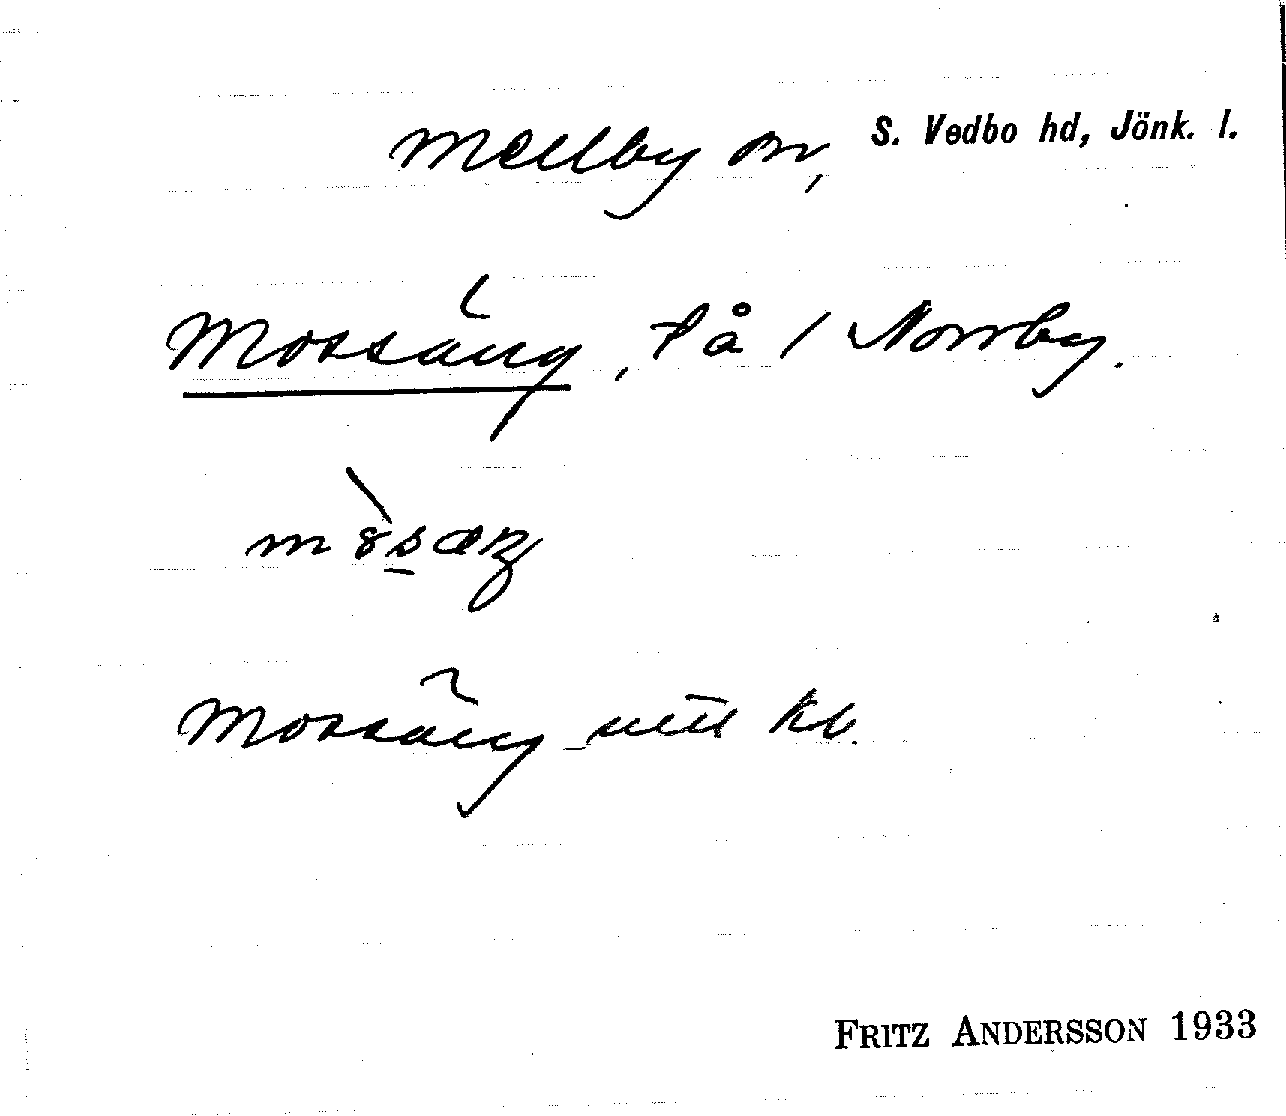 Mellby sn, S. Vedbo hd, Jönk. l.
Mossäng, på 1 Norrby.
Mossäng
FRITZ ANDERSSON 1933